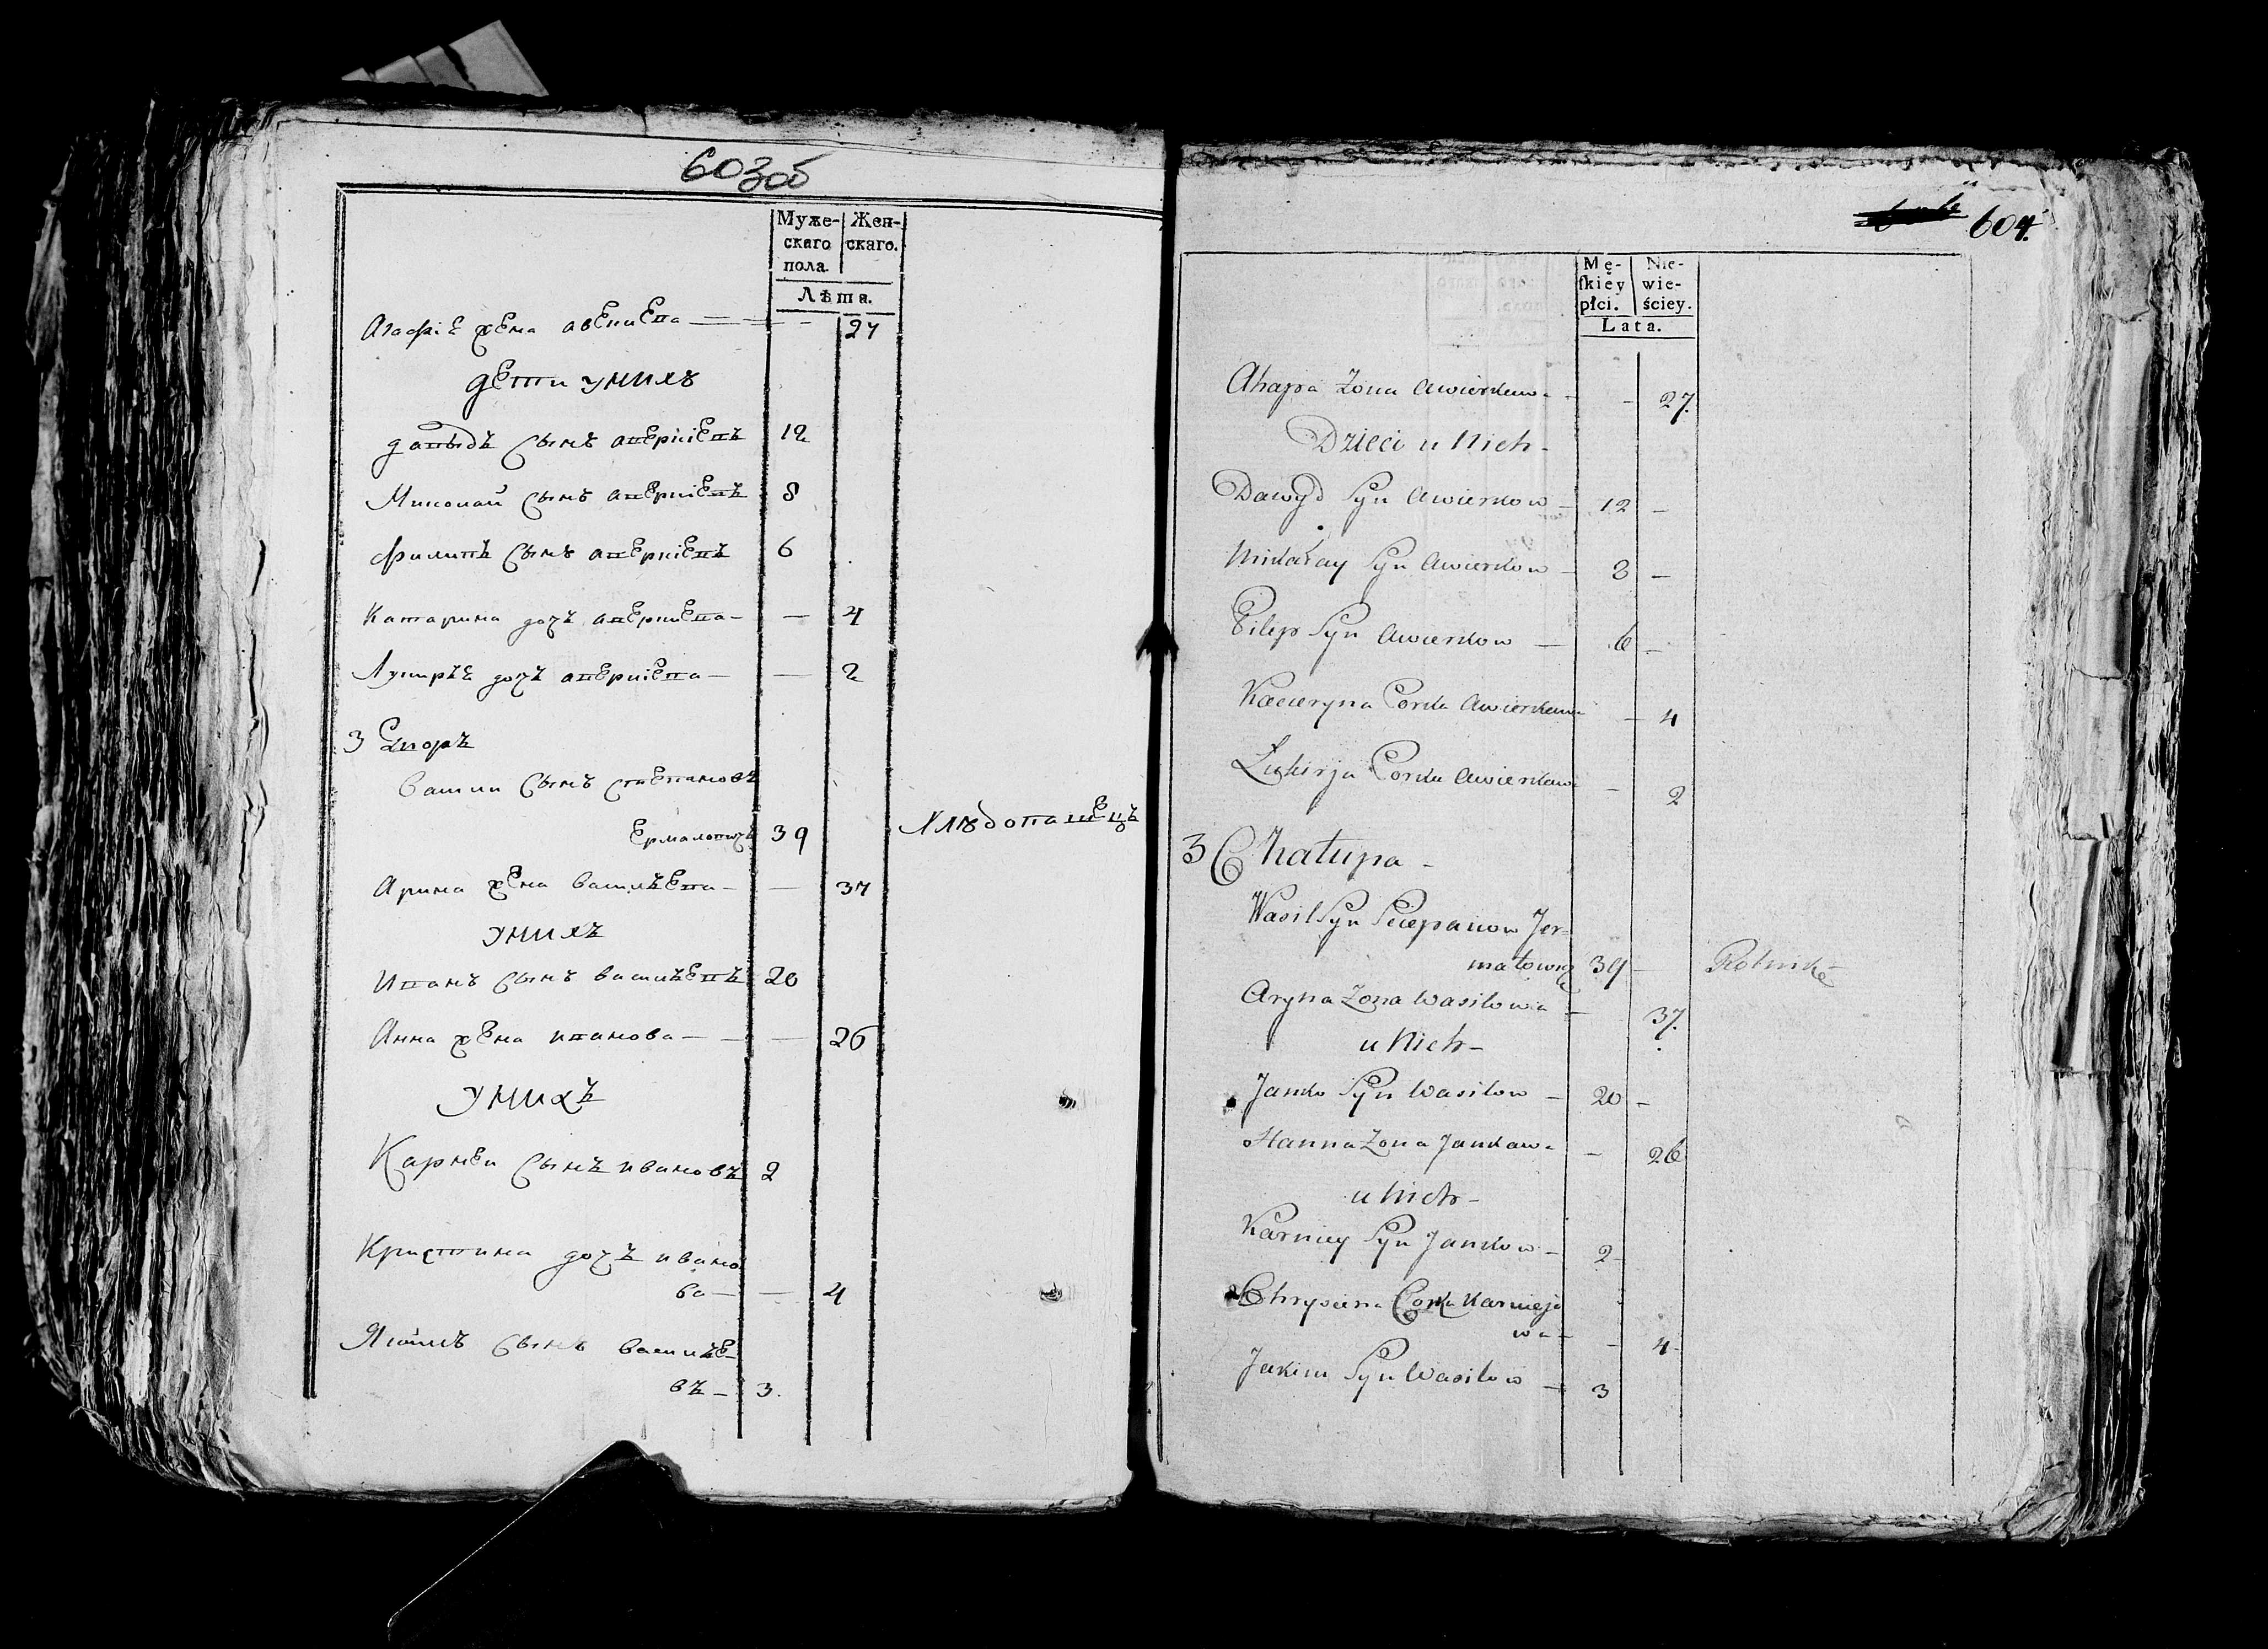 603об
Муже- Жен-
скаго скаго.
пола.
Лѣта.
Агафiе жена — 27
дети унихъ
давыдъ сынъ аверкiевъ 12
Миколай сынъ аверкiевъ 8
филипъ сынъ аверкiевъ 6
Катарина дочъ аверкиева — — 4
Лукиръе дочъ аверкiева — — 2
3 Дворъ
Василии сынъ степановъ
Ермаловичъ 39 Хлѣбопашецъ
Арина жена василъева — — 37
унихъ
Иванъ сынъ василъевъ 20
Анна жена иванова — — 26
унихъ
Карнеи сынъ ивановъ 2
Кристина дочъ ивано
ва — — 4
Якимъ сынъ василъе-
въ — 3
604.
Mę- Nie-
ſkiey wie-
płci. ściey.
Lata.
Ahapa Zona Awierkowa — 27.
Dzieci u Nich —
Dawyd Syn Awierkow — 12 —
Mikałay Syn Awierkow — 8 —
Filip Syn Awierkow — 6 —
Kacieryna Corka Awierkowa — 4
Łukirja Corka Awierkowa — 2
3 Chałupa —
Wasil Syn Sciepanow Jer-
małowicz 39 —
Aryna Zona Wasilowa — 37.
u Nich —
Janko Syn Wasilow — 20 —
Hanna Zona Jankowa — 26
u Nich —
Karniey Syn Jankow — 2
Chryscina Corka Karniejo
wa — — 4
Jakim Syn Wasilow — 3